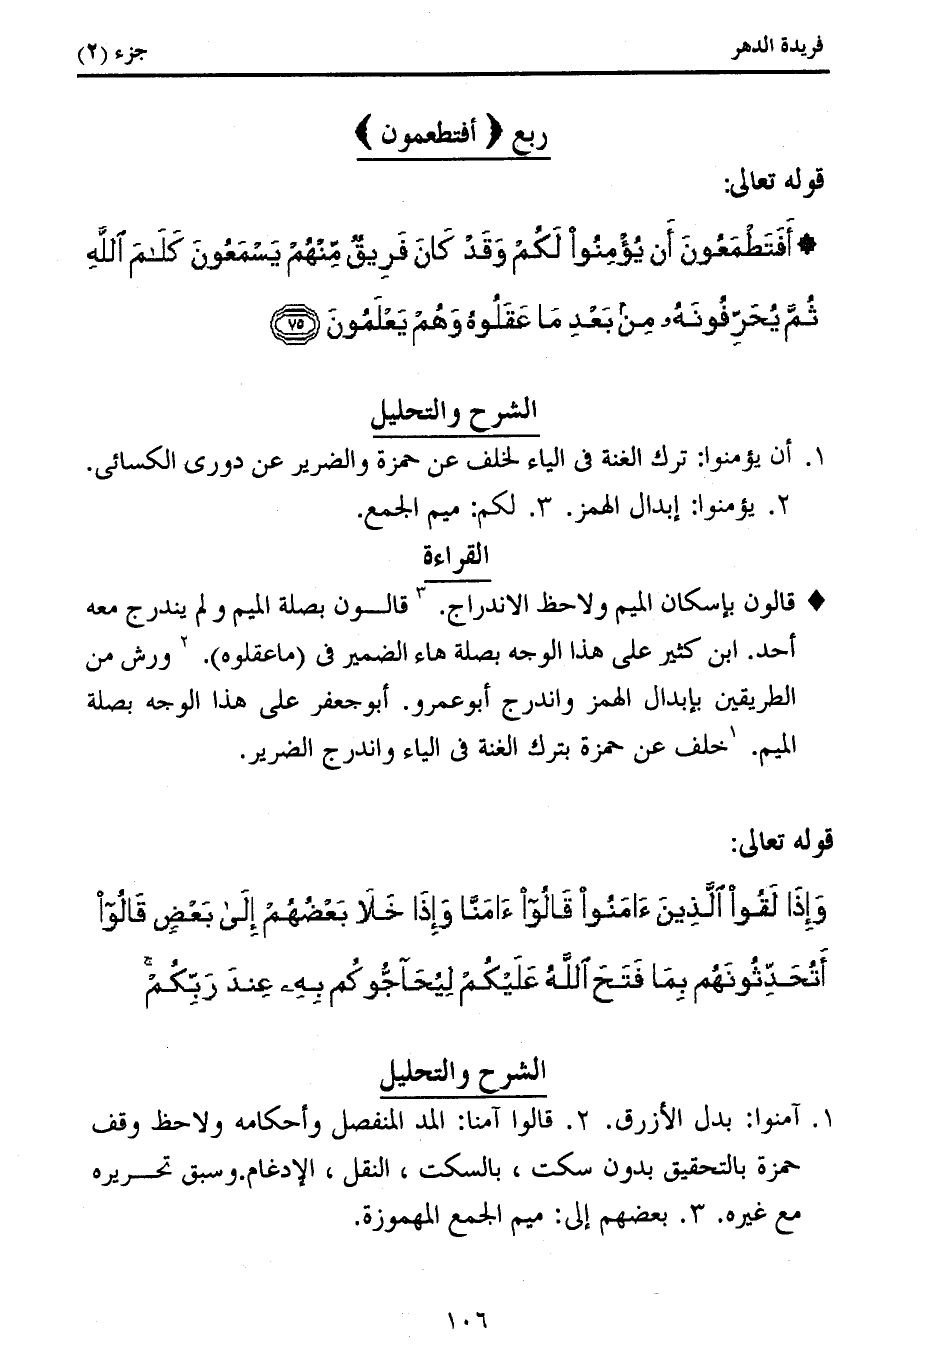 فريدة الدهر جزء (٢)
ربع ﴿ أفتطعمون ﴾
قوله تعالى:
* أَفَتَطْمَعُونَ أَن يُؤْمِنُواْ لَكُمْ وَقَدْ كَانَ فَرِيقٌ مِّنْهُمْ يَسْمَعُونَ كَلَٰمَ ٱللَّهِ
ثُمَّ يُحَرِّفُونَهُۥ مِنۢ بَعْدِ مَا عَقَلُوهُ وَهُمْ يَعْلَمُونَ ٧٥
الشرح والتحليل
١. أن يؤمنوا: ترك الغنة فى الياء لخلف عن حمزة والضرير عن دورى الكسائى.
٢. يؤمنوا: إبدال الهمز. ٣. لكم: ميم الجمع.
القراءة
♦ قالون بإسكان الميم ولاحظ الاندراج. ٣ قالــون بصلة الميم ولم يندرج معه
أحد. ابن كثير على هذا الوجه بصلة هاء الضمير فى (ماعقلوه). ٢ ورش من
الطريقين بإبدال الهمز واندرج أبوعمرو. أبوجعفر على هذا الوجه بصلة
الميم. ١ خلف عن حمزة بترك الغنة فى الياء واندرج الضرير.
قوله تعالى:
وَإِذَا لَقُواْ ٱلَّذِينَ ءَامَنُواْ قَالُوٓاْ ءَامَنَّا وَإِذَا خَلَا بَعْضُهُمْ إِلَىٰ بَعْضٍ قَالُوٓاْ
أَتُحَدِّثُونَهُم بِمَا فَتَحَ ٱللَّهُ عَلَيْكُمْ لِيُحَآجُّوكُم بِهِۦ عِندَ رَبِّكُمْ ۚ
الشرح والتحليل
١. آمنوا: بدل الأزرق. ٢. قالوا آمنا: المد المنفصل وأحكامه ولاحظ وقف
حمزة بالتحقيق بدون سكت ، بالسكت ، النقل ، الإدغام.وسبق تحـــريره
مع غيره. ٣. بعضهم إلى: ميم الجمع المهموزة.
١٠٦